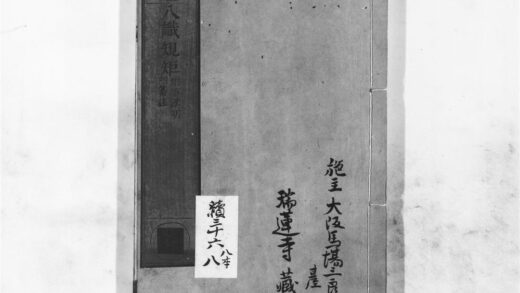 施主 大阪馬場三良
臺
瑞蓮寺 藏
續三十六
八
八本
八識規矩